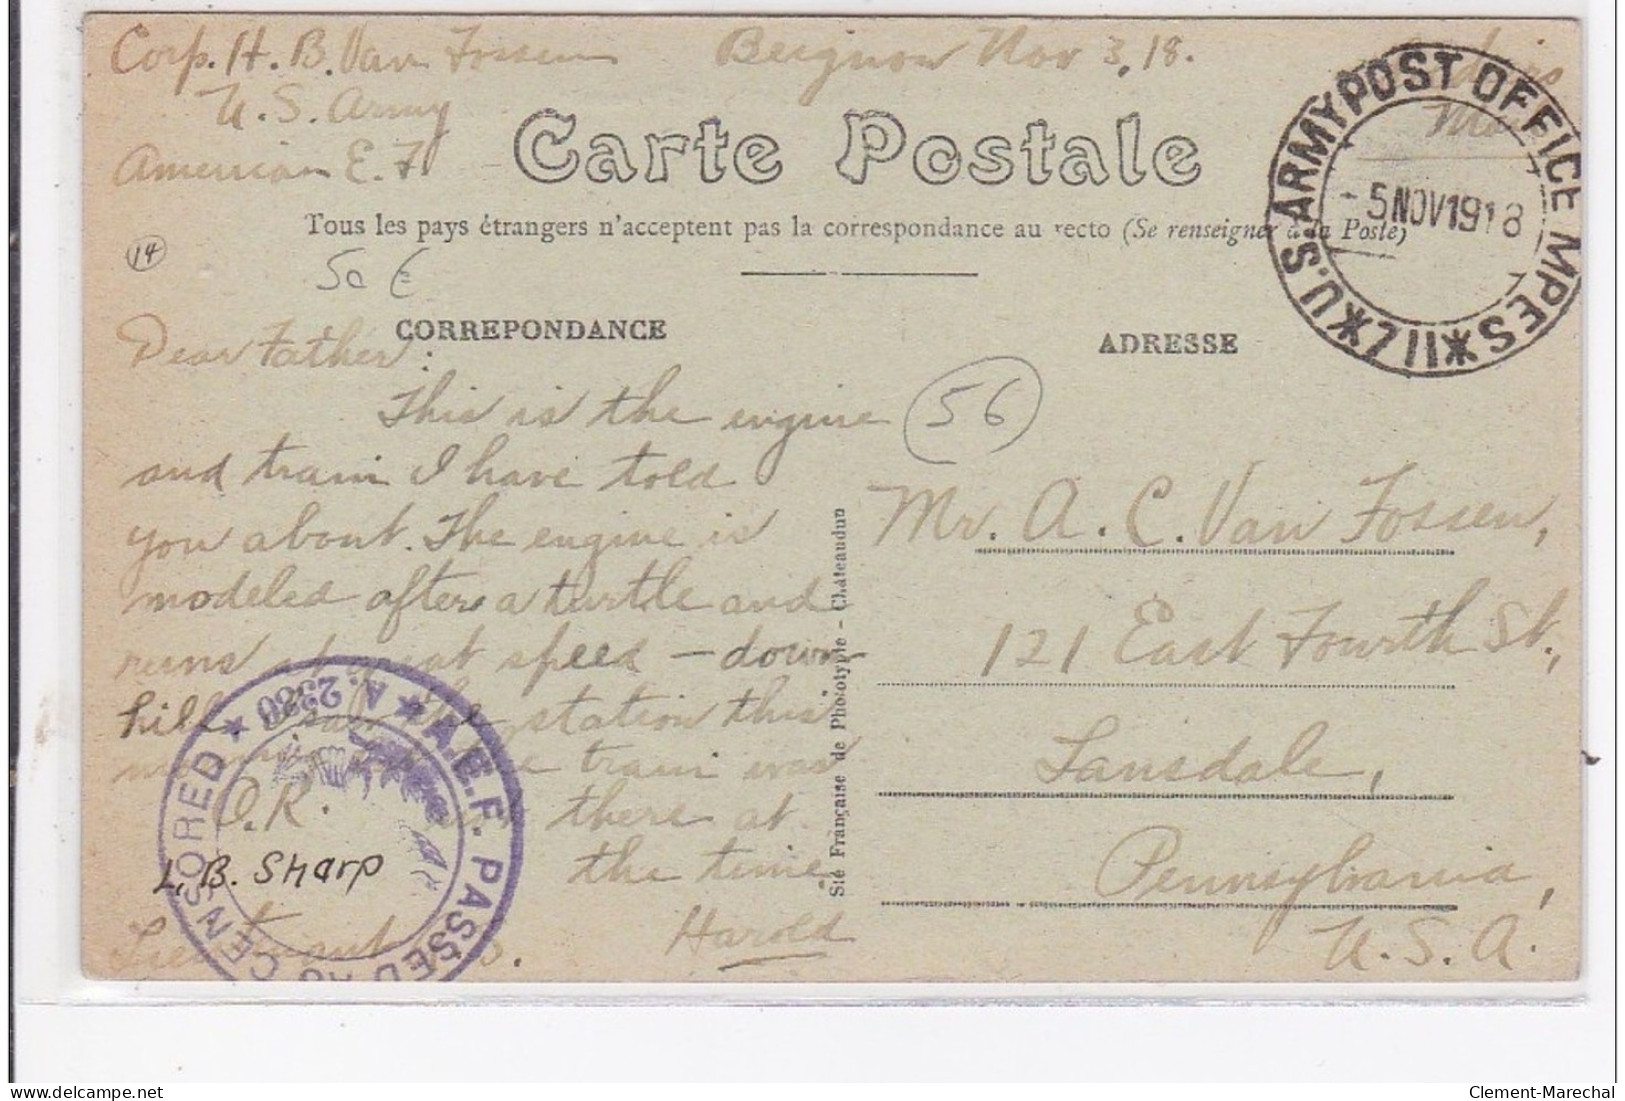 Corp. H. B. Van Fossen Beignon Nov 3, 18.
U. S. Army
American E. F.
Carte Postale
Tous les pays étrangers n'acceptent pas la correspondance au recto (Se renseigner à la Poste)
U.S. ARMY POST OFFICE MPES * 117 *
- 5 NOV 1918
14
50 €
CORREPONDANCE
ADRESSE
Dear Father:
This is the engine
56
and train I have told
you about. The engine is
modeled after a turtle and
runs at great speed – down
hill. I saw the station this
morning the train was
O.K. there at
the time.
Harold
L. B. Sharp
Lieutenant
A.E.F. PASSED AS CENSORED * A. 2380 *
Sté Française de Phototypie - Châteaudun
Mr. A. C. Van Fossen,
121 East Fourth St.,
Lansdale,
Pennsylvania,
U. S. A.
www.delcampe.net
Clement-Marechal